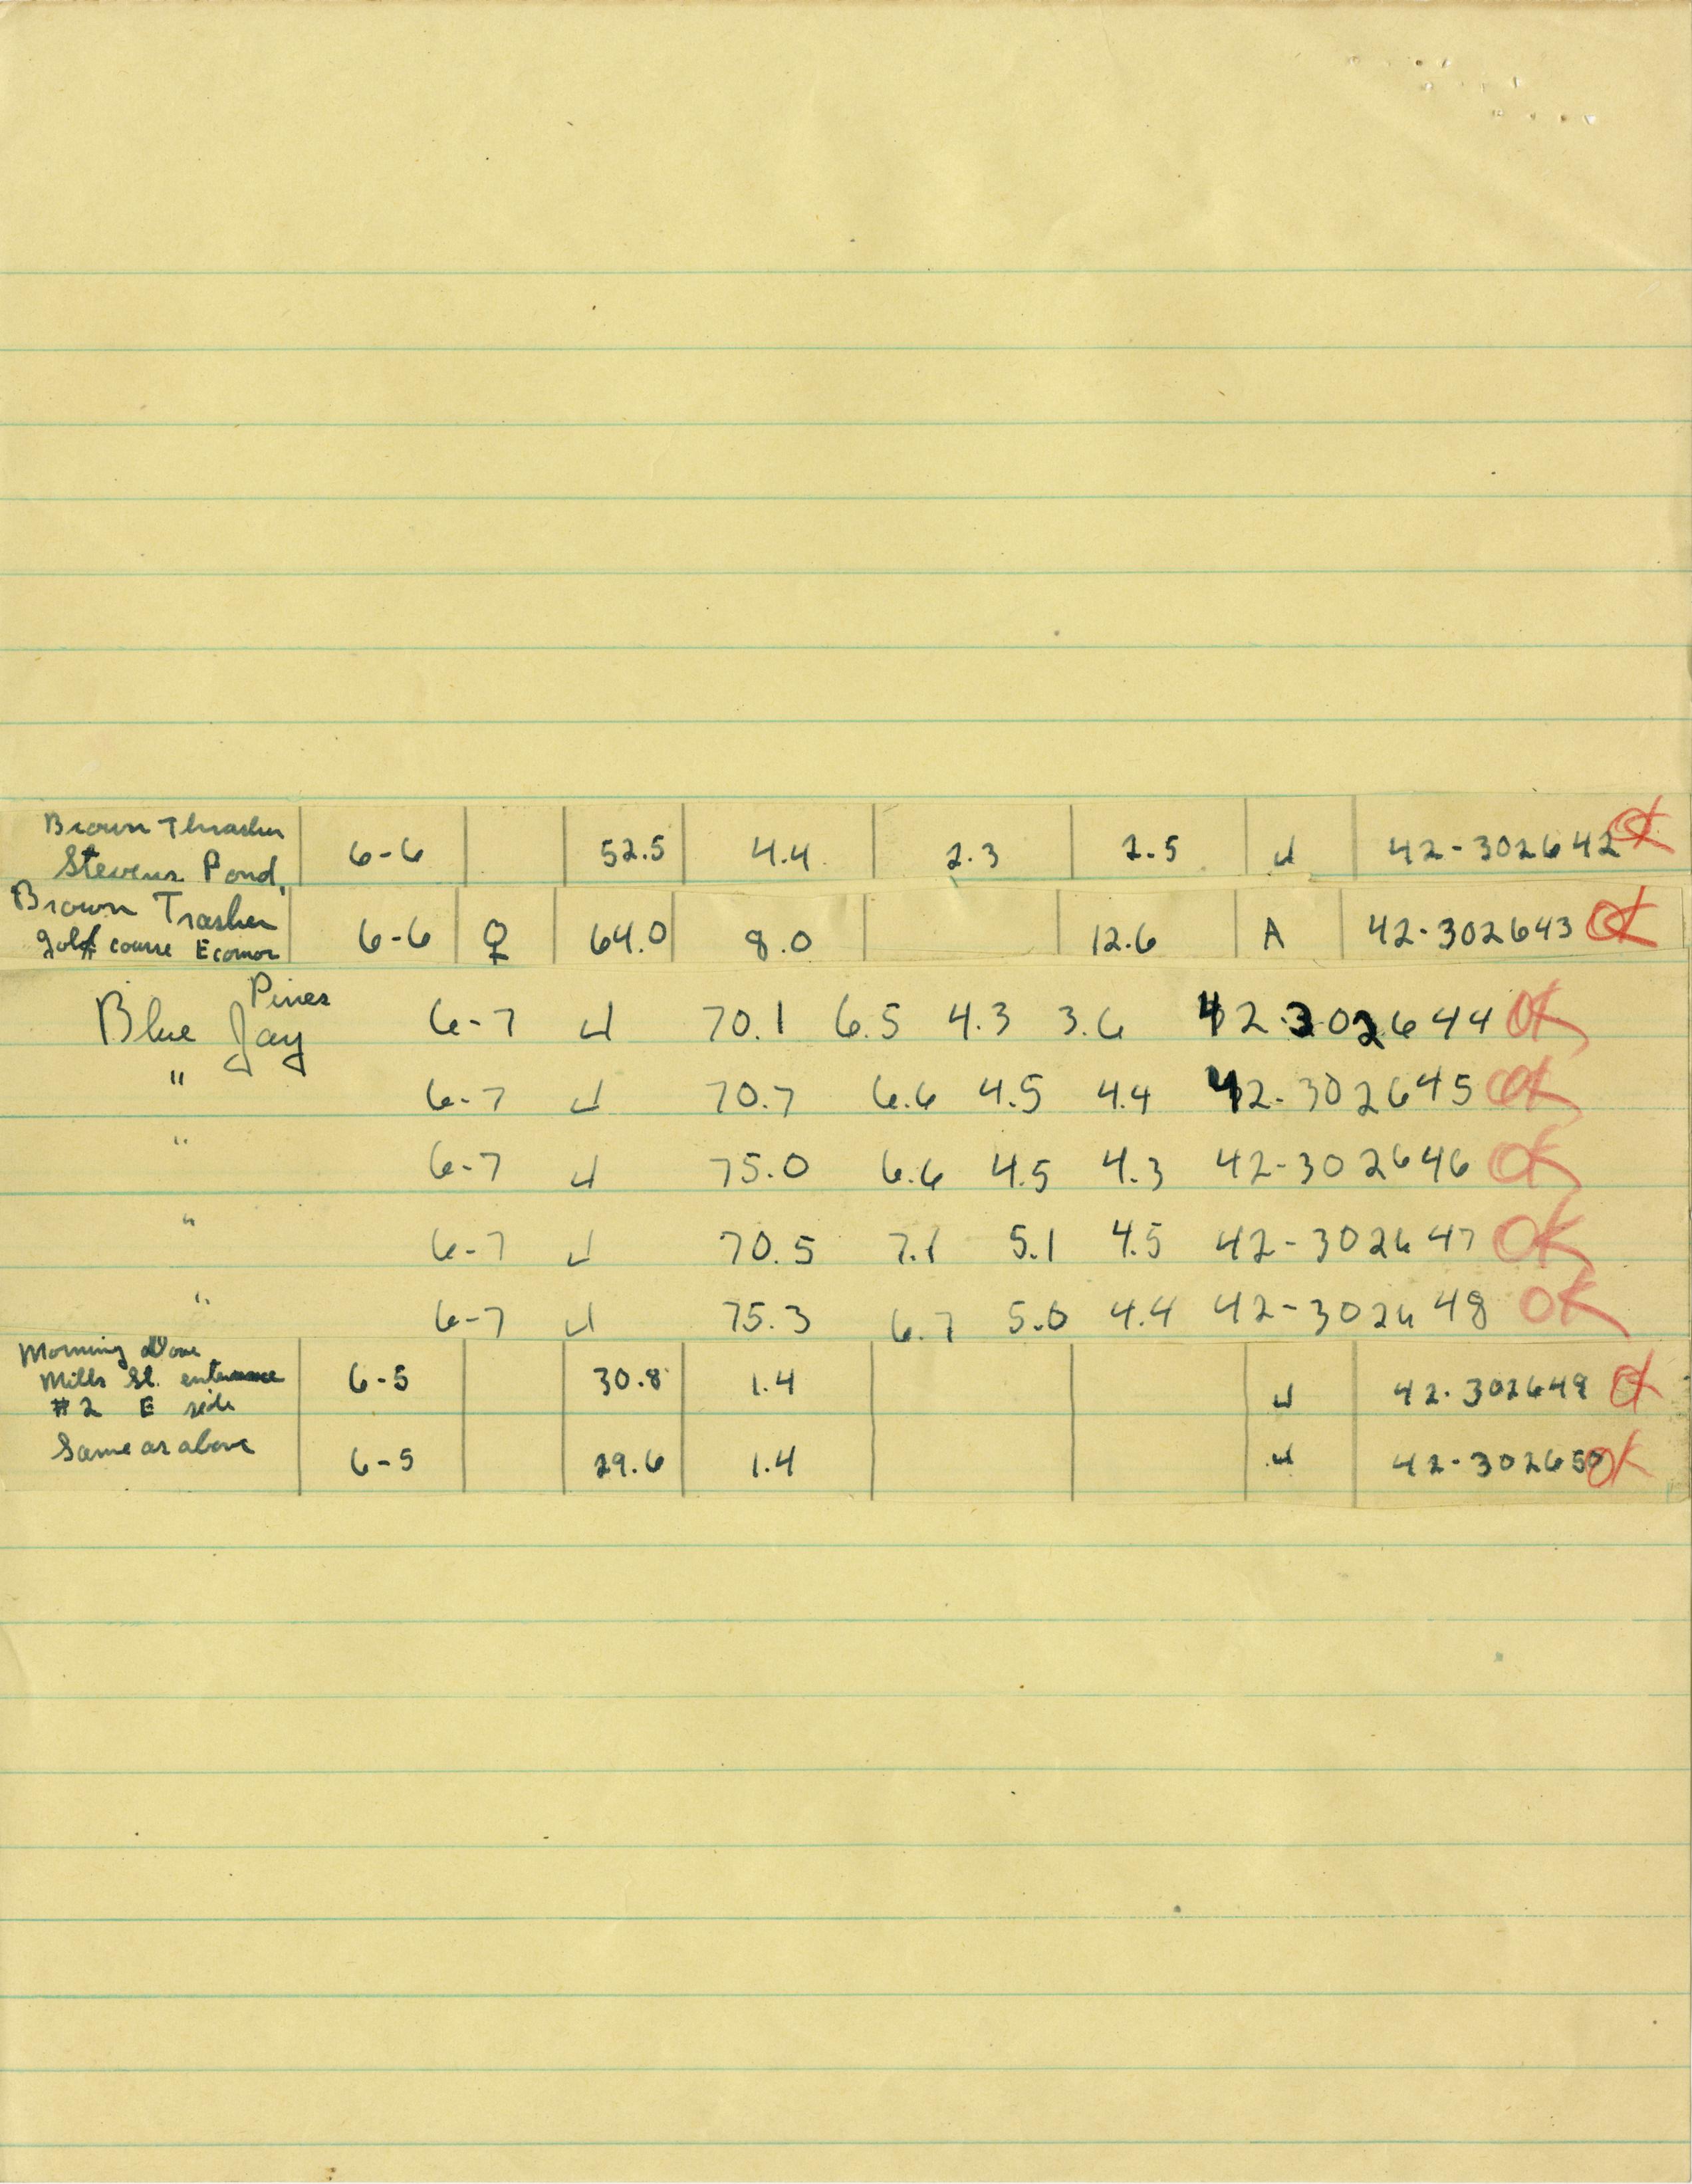 Brown Thrasher
Stevens Pond 6-6 52.5 4.4 2.3 2.5 J 42-302642 OK
Brown Trasher
golf course E comor 6-6 ♀ 64.0 8.0 12.6 A 42-302643 OK
Pines
Blue Jay 6-7 J 70.1 6.5 4.3 3.6 42-302644 OK
" 6-7 J 70.7 6.6 4.5 4.4 42-302645 OK
" 6-7 J 75.0 6.6 4.5 4.3 42-302646 OK
" 6-7 J 70.5 7.1 5.1 4.5 42-302647 OK
" 6-7 J 75.3 6.7 5.0 4.4 42-302648 OK
Morning Dove
Mills St. entrance 6-5 30.8 1.4 J 42-302649 OK
#2 E side
Same as above 6-5 29.6 1.4 J 42-302650 OK